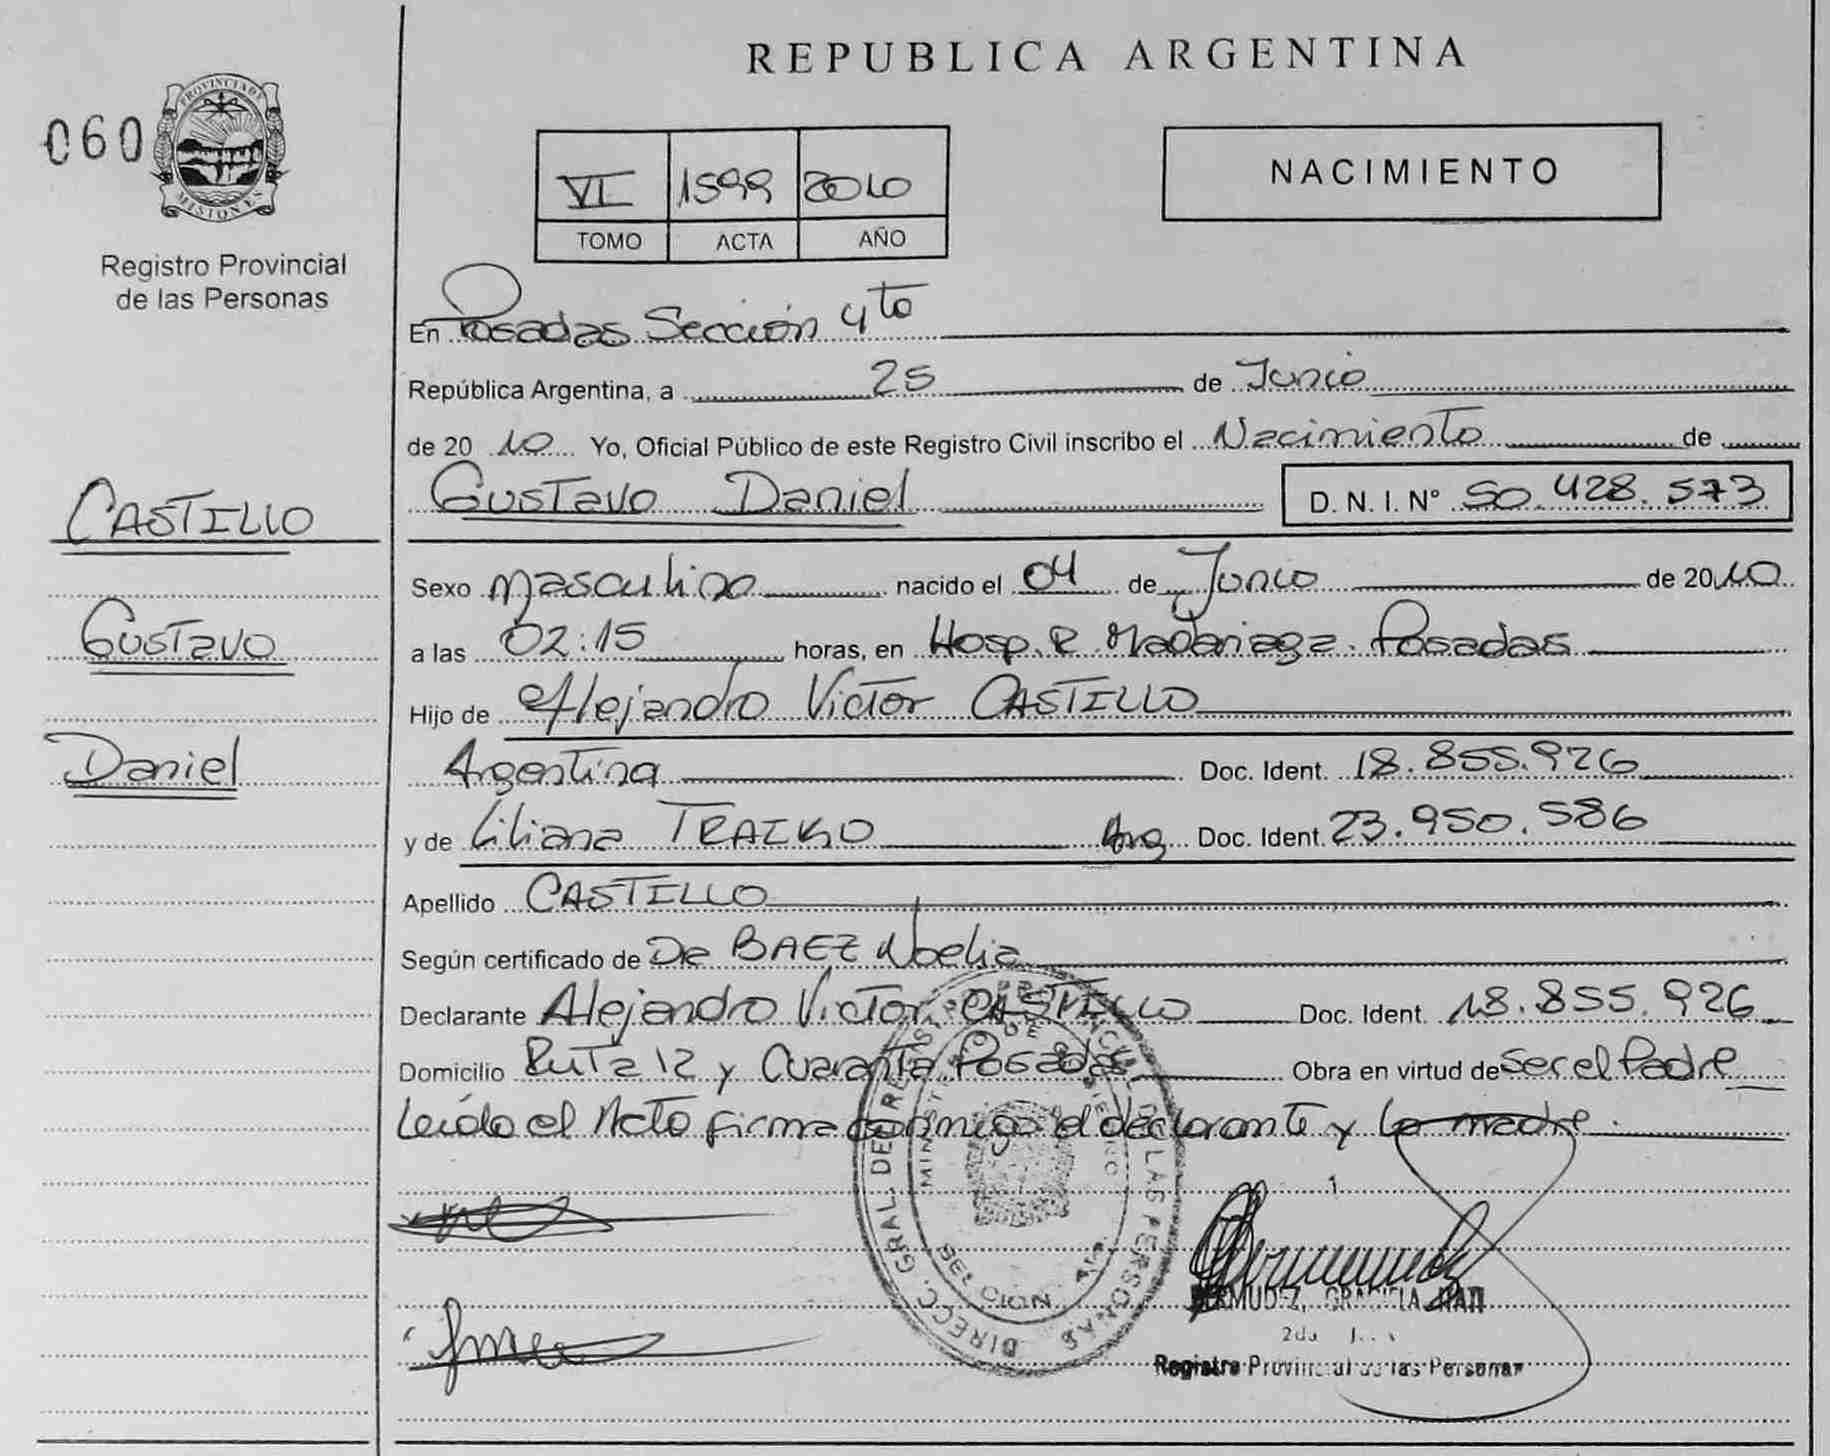 REPUBLICA ARGENTINA
060
PROVINCIA DE
MISIONES
Registro Provincial
de las Personas
VI 1599 2010
TOMO ACTA AÑO
NACIMIENTO
En Posadas Sección 4to
República Argentina, a 25 de Junio
de 2010 Yo, Oficial Público de este Registro Civil inscribo el Nacimiento de
Gustavo Daniel D. N. I. N° 50.428.573
CASTILLO
Gustavo
Daniel
Sexo masculino nacido el 04 de Junio de 2010
a las 02:15 horas, en Hosp. R. Madariaga. Posadas
Hijo de Alejandro Victor CASTILLO
Argentina Doc. Ident. 18.855.926
y de Liliana TRAIKO Arg Doc. Ident. 23.950.586
Apellido CASTILLO
Según certificado de De BAEZ Noelia
Declarante Alejandro Victor CASTILLO Doc. Ident. 18.855.926
Domicilio Ruta 12 y Cuaranta Posadas Obra en virtud de Ser el Padre
Leído el Acto firma conmigo el declarante y la madre.
DIRECC. GRAL. DEL REG. PROVINCIAL DE LAS PERSONAS
BERMUDEZ, GRACIELA
Registro Provincial de las Personas